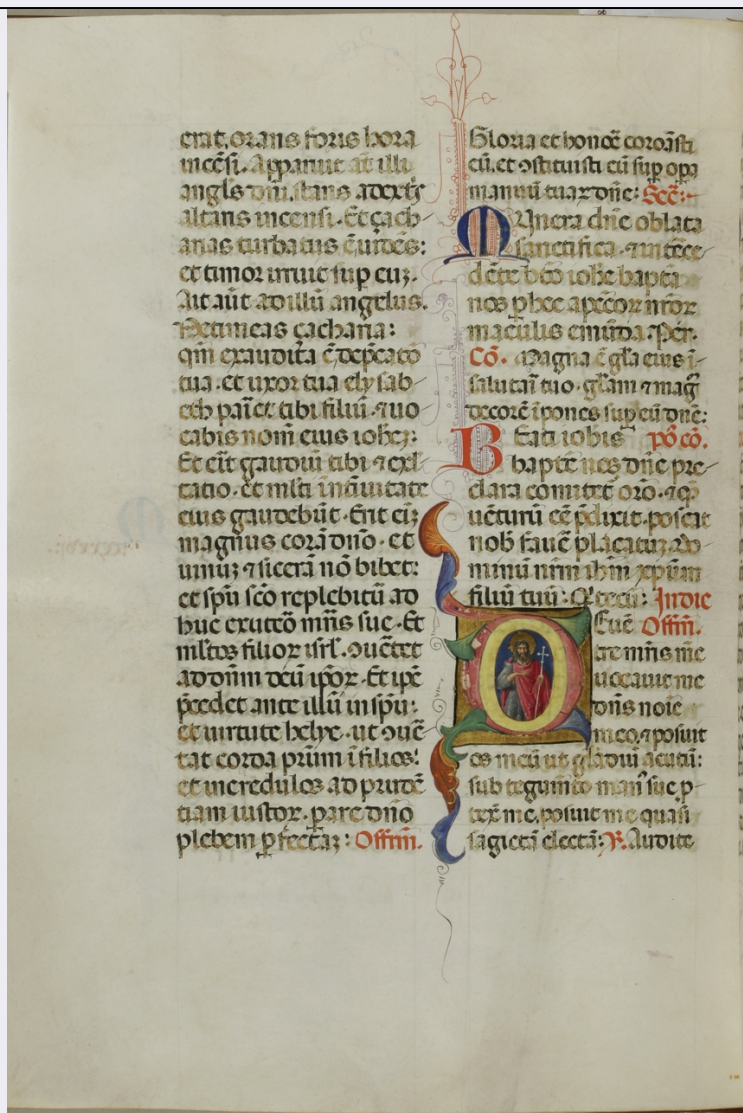 erat. orans foris hora
incẽsi. Apparuit at̃ illi
angl̃s dñi. stans adextĩs
altaris incensi. Et çach
arias turbatus ẽ uidẽs:
et timor irruit sup̱ euʒ.
Ait aũt ad illũ angelus.
Ne timeas çacharia:
qm̃ exaudita ẽ dep̃catõ
tua. et uxor tua elysab
eth pariet tibi filiũ. ⁊ uo
cabis nom̃ eius ioheʒ:
Et erit gaudiũ tibi ⁊ exl̃
tatio. et ml̃ti ĩ natiuitate
eius gaudebũt. Erit eĩʒ
magnus corã dño. et
uinuʒ ⁊ sicerã nõ bibet:
et spũ scõ replebitũ ad
huc ex utẽo mr̃is sue. Et
ml̃tos filioꝝ isrl̃. ꝯuẽtet
ad dñm deũ ip̃oꝝ. Et ip̃e
p̃cedet ante illũ in sp̃u:
et uirtute helye. ut ꝯuẽ
tat corda pr̃um ĩ filios:
et incredulos ad prudẽ
tiam iustoꝝ. parare dño
plebem ꝑfectaʒ: Offm̃.
Gloria et honoẽ coroãsti
eũ. et ꝯstituisti eũ sup̱ op̱a
manuũ tuaꝝ dñe: Secr̃:
Munera dñe oblata
sanctifica. ⁊ intẽce
dẽte bt̃o iohe bapt̃a
nos ꝑ hec a pẽcoꝝ nr̃oꝝ
maculis emũda. Pẽr.
Cõ. Magna ẽ gl̃a eius ĩ
salutari tuo. gl̃am ⁊ mag̃
decorẽ ĩpones sup̱ eũ dñe:
Beati iohis põ cõ.
bapt̃e nos dñe pre
clara comitet̃ orõ. ⁊ q̃
uẽturũ eẽ p̃dixit. poscat
nob̃ fauẽ placatuʒ. do
minũ nr̃m ihm̃ xp̱um
filiũ tuũ: Q̃ tecũ: In die
De uẽ Offm̃.
tre mr̃is me
uocauit me
dñs noĩe
meo. ⁊ posuit
os meũ ut gladiũ acutũ:
sub tegumẽto man̾ sue p̱
texit me. posuit me quasi
sagittã electã: ℞. Audite